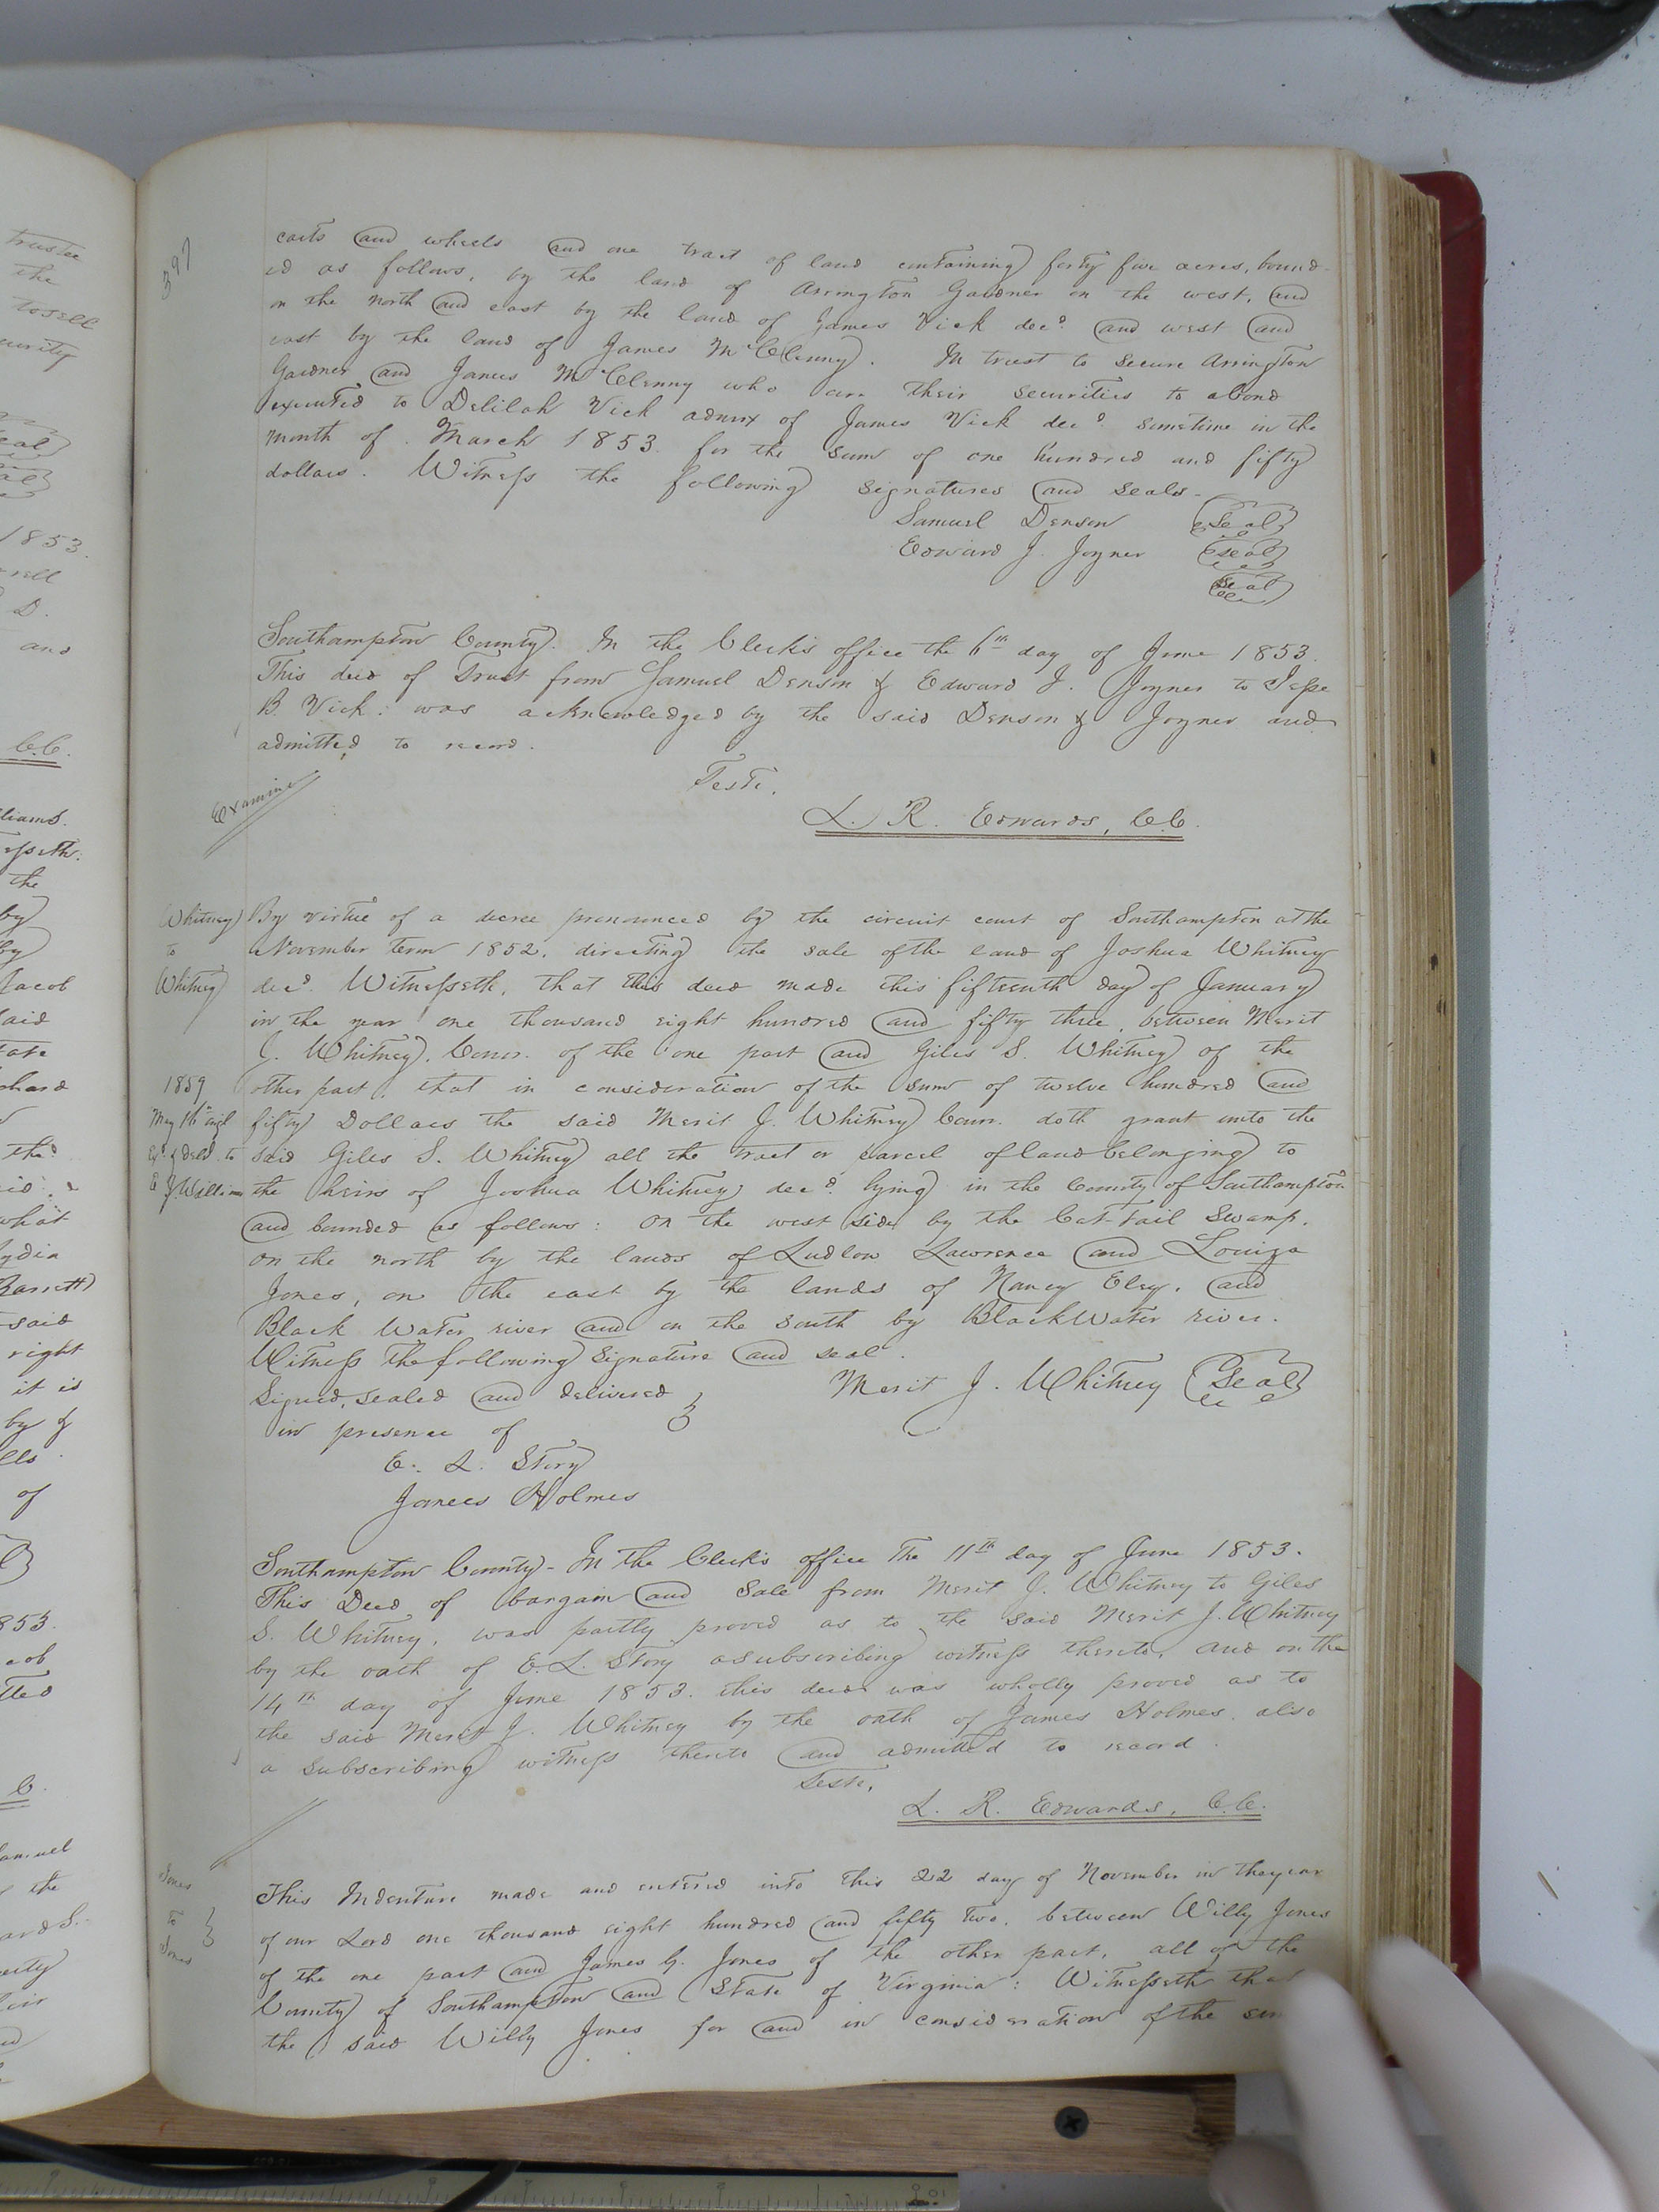 397
carts and wheels and one tract of land containing forty five acres, bound-
ed as follows, by the land of Arrington Gardner on the west, and
on the north and east by the land of James Vick decd. and west and
east by the land of James McClenny. In trust to secure Arrington
Gardner and James McClenny who are their securities to abond
executed to Delilah Vick admrx of James Vick decd. sometime in the
month of March 1853 for the sum of one hundred and fifty
dollars. Witness the following signatures and seals-
Samuel Denson Seal
Edward J. Joyner Seal
Seal
Southampton County. In the Clerk's office the 6th day of June 1853.
This deed of Trust from Samuel Denson & Edward J. Joyner to Jesse
B. Vick: was acknowledged by the said Denson & Joyner and
admitted to record.
Teste.
Examined
L. R. Edwards, C.C.
Whitney
to
Whitney
By virtue of a decree pronounced by the circuit court of Southampton at the
November term 1852, directing the sale of the land of Joshua Whitney
decd. Witnesseth, that this deed made this fifteenth day of January
in the year one thousand eight hundred and fifty three, between Merit
J. Whitney, Comr. of the one part and Giles S. Whitney of the
other part, that in consideration of the sum of twelve hundred and
fifty Dollars the said Merit J. Whitney Comr. doth grant unto the
said Giles S. Whitney all the tract or parcel of land belonging to
the heirs of Joshua Whitney decd. lying in the County of Southampton
and bounded as follows: on the west side by the Cat-tail swamp,
on the north by the lands of Ludlow Lawrence and Louiza
Jones, on the east by the lands of Nancy Eley, and
Black Water river and on the south by BlackWater river.
Witness the following signature and seal.
1859
May 16th
& deld. to
E J Williams
Signed, sealed and delivered
in presence of
Merit J. Whitney Seal
E. L. Story
James Holmes
Southampton County- In the Clerk's office The 11th day of June 1853.
This Deed of bargain and Sale from Merit J. Whitney to Giles
S. Whitney, was partly proved as to the said Merit J. Whitney
by the oath of E. L. Story a subscribing witness thereto, and on the
14th day of June 1853. this deed was wholly proved as to
the said Merit J. Whitney by the oath of James Holmes, also
a subscribing witness thereto and admitted to record.
Teste,
L. R. Edwards, C.C.
Jones
to
Jones
This Indenture made and entered into this 22 day of November in the year
of our Lord one thousand eight hundred and fifty two, between Willy Jones
of the one part and James G. Jones of the other part, all of the
County of Southampton and State of Virginia: Witnesseth that
the said Willy Jones for and in consideration of the
trustee
the
to sell
1853.
and
C.C.
the
by
by
Jacob
said
the
what
Lydia
said
right
it is
by &
of
853.
the